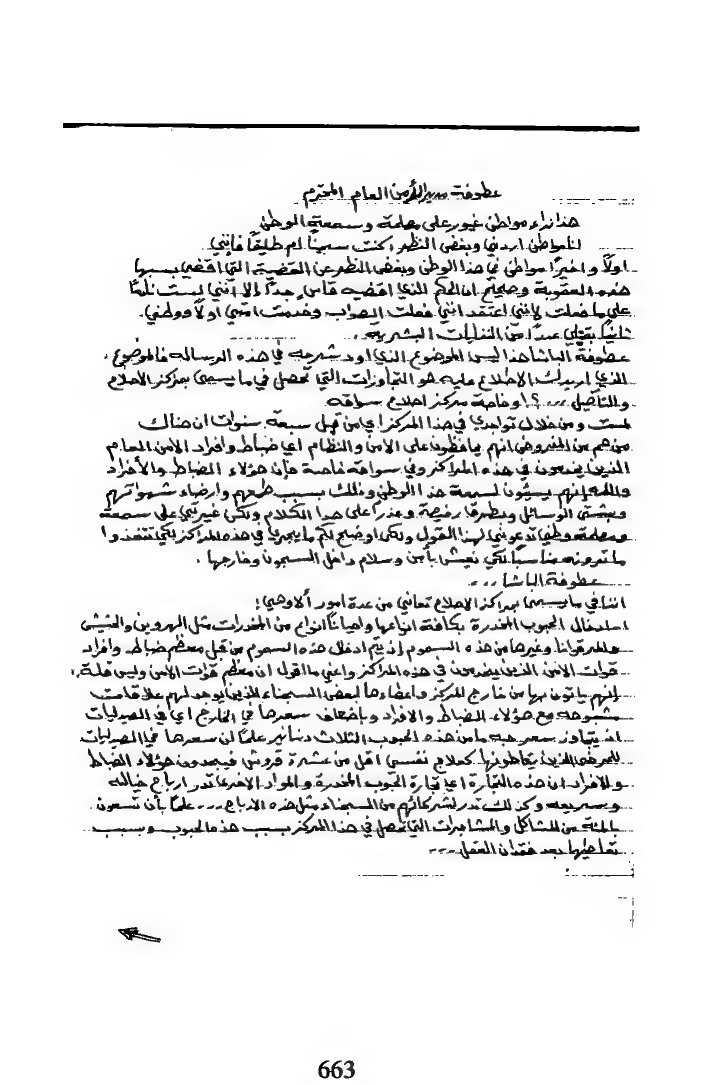 عطوفة مدير الأمن العام المحترم
هذا نداء مواطن غيور على مصلحة وسمعة الوطن
انا مواطن اردني وبغض النظر اكنت سجيناً ام طليقاً فإنني
اولاً واخيراً مواطن في هذا الوطن وبغض النظر عن القضية التي اقضي بسببها
هذه العقوبة وصحيح ان الحكم الذي اقضيه قاس جداً إلا انني لست نادماً
على ما فعلت لإنني اعتقد انني فعلت الصواب وخدمت امتي اولاً ووطني
ثانياً بقتلي عدداً من النفايات البشرية
عطوفة الباشا هذا ليس الموضوع الذي اود شرحه في هذه الرسالة فالموضوع
الذي اريدك الاطلاع عليه هو التجاوزات التي تحصل في ما يسمى بمراكز الاصلاح
والتأهيل ...؟! وخاصة مركز اصلاح سواقة
لمست ومن خلال تواجدي في هذا المركز اي من قبل سبعة سنوات ان هناك
من هم من المفروض انهم يحافظون على الامن والنظام اي ضباط وافراد الامن العام
الذين يخدمون في هذه المراكز وفي سواقة خاصة فإن هؤلاء الضباط والأفراد
والله إنهم يسيئون لسمعة هذا الوطن وذلك بسبب طمعهم وارضاء شهواتهم
وبشتى الوسائل وبطرق رخيصة وعذراً على هذا الكلام ولكن غيرتي على سمعة
ومصلحة وطني تدعوني لهذا القول ولكي اوضح لكم ما يجري في هذه المراكز لكي تتخذوا
ما ترونه مناسباً لكي نعيش بأمن وسلام داخل السجون وخارجها .
عطوفة الباشا ...
اننا في ما يسمى بمراكز الاصلاح نعاني من عدة امور ألا وهي :
ادخال الحبوب المخدرة بكافة انواعها واحياناً انواع من المخدرات مثل الهروين والحشيش
وغيرها من هذه السموم إذ يتم ادخال هذه السموم من قبل معظم ضباط وافراد
قوات الامن الذين يخدمون في هذه المراكز واعني ما اقول ان معظم قوات الامن وليس قلة
إنهم يأتون بها من خارج المركز واعطاءها لبعض السجناء الذين يوجد لهم علاقات
مشبوهة مع هؤلاء الضباط والافراد وبإضعاف سعرها في الخارج اي في الصيدليات
اذ يتجاوز سعر حبة ما من هذه الحبوب الثلاث دنانير علماً ان سعرها في الصيدليات
للمرضى الذين يتعاطونها كعلاج نفسي اقل من عشرة قروش فيجدون هؤلاء الضباط
والافراد ان هذه التجارة اي تجارة الحبوب المخدرة والمواد الاخرى تدر ارباح خيالية
وسريعة وكذلك تدر لشركائهم من السجناء مثل هذه الارباح ... علماً بأن تسعون
بالمئة من المشاكل والمشاجرات التي تحصل في هذا المركز بسبب هذه الحبوب وسبب
تعاطيها بعد فقدان العقل ...
663